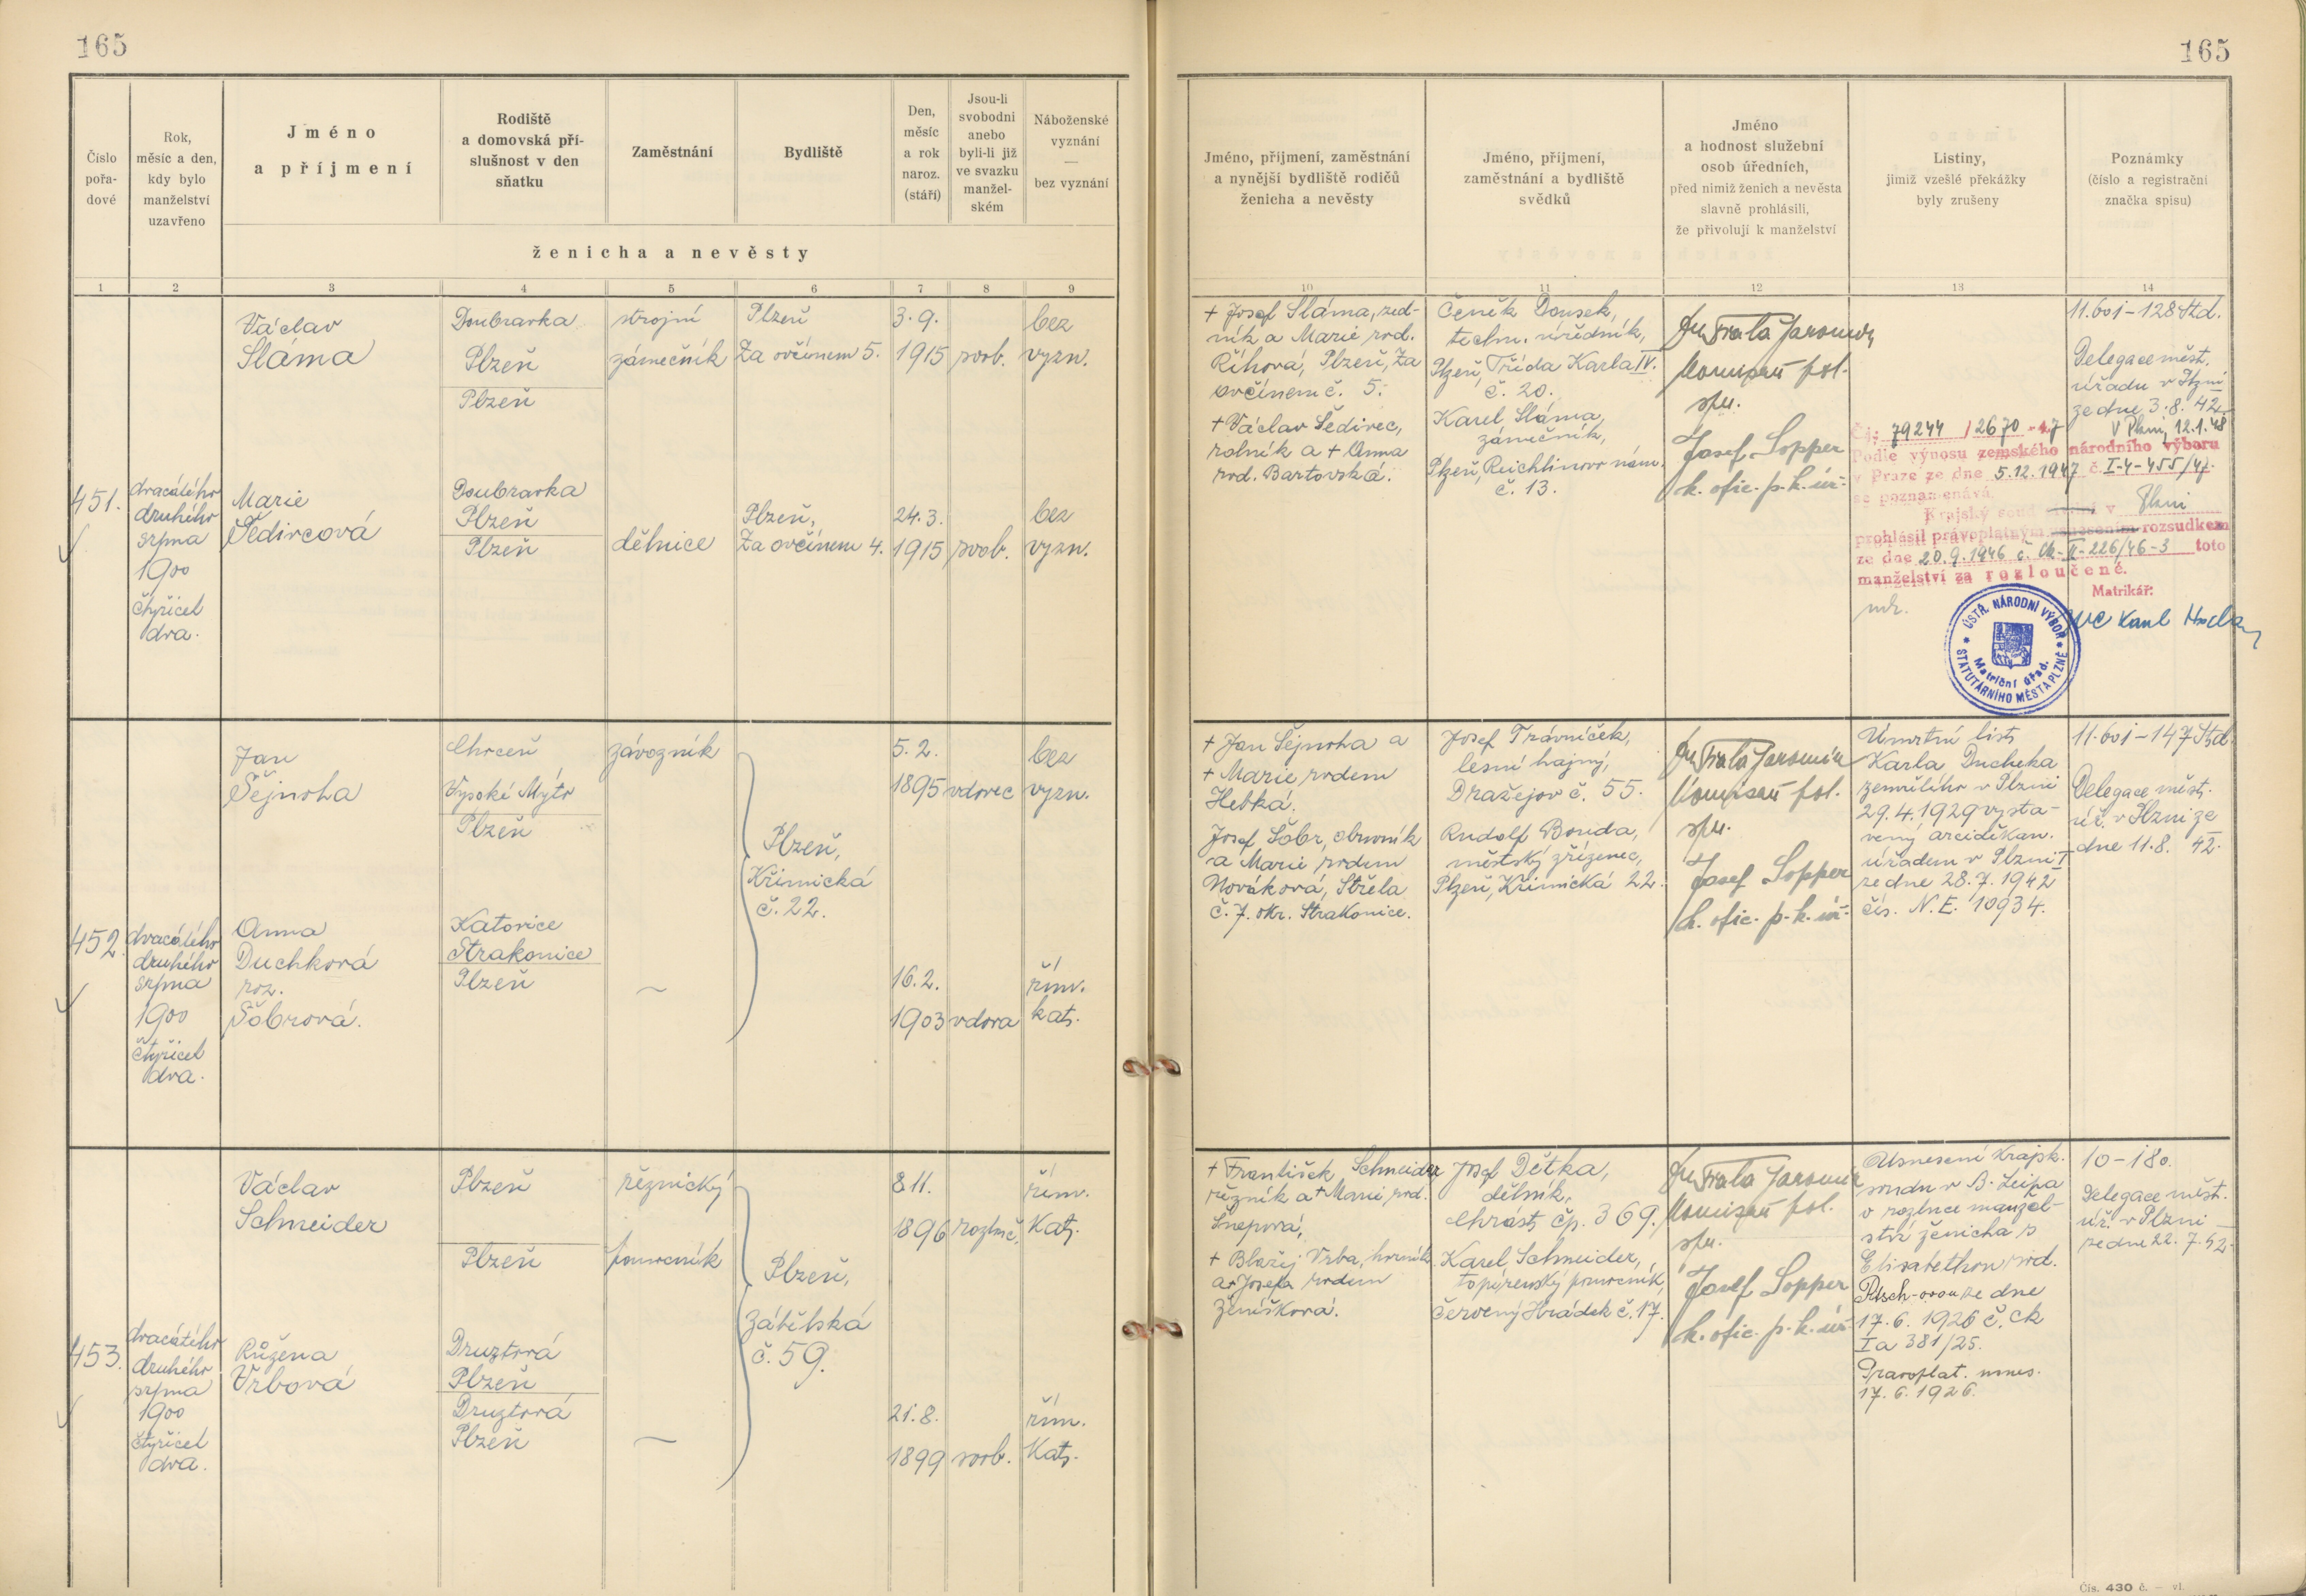 165
165
Číslo
pořa-
dové
Rok,
měsíc a den,
kdy bylo
manželství
uzavřeno
Jméno
a příjmení
Rodiště
a domovská pří-
slušnost v den
sňatku
Zaměstnání
Bydliště
Den,
měsíc
a rok
naroz.
(stáří)
Jsou-li
svobodni
anebo
byli-li již
ve svazku
manžel-
ském
Náboženské
vyznání
—
bez vyznání
ženicha a nevěsty
Jméno, příjmení, zaměstnání
a nynější bydliště rodičů
ženicha a nevěsty
Jméno, příjmení,
zaměstnání a bydliště
svědků
Jméno
a hodnost služební
osob úředních,
před nimiž ženich a nevěsta
slavně prohlásili,
že přivolují k manželství
Listiny,
jimiž vzešlé překážky
byly zrušeny
Poznámky
(číslo a registrační
značka spisu)
1 2 3 4 5 6 7 8 9 10 11 12 13 14
451.
dvacátého
druhého
srpna
1900
čtyřicet
dva.
Václav
Sláma
Doubravka
Plzeň
Plzeň
strojní
zámečník
Plzeň
Za ovčínem 5.
3. 9.
1915
svob.
bez
vyzn.
Marie
Šedivcová
Doubravka
Plzeň
Plzeň
dělnice
Plzeň,
Za ovčínem 4.
24. 3.
1915
svob.
bez
vyzn.
+ Josef Sláma, zed-
ník a Marie rod.
Říhová, Plzeň, Za
ovčínem č. 5.
+ Václav Šedivec,
rolník a + Anna
rod. Bartovská.
Čeněk Dousek,
techn. úředník,
Plzeň, Třída Karla IV.
č. 20.
Karel Sláma,
zámečník,
Plzeň, Reichlinovo nám.
č. 13.
Jaromír
pol.
spr.
Josef Sopper
k. ofic. p. k. úř.
11.601-128 Std.
Delegace měst.
úřadu v Plzni
ze dne 3. 8. 42.
V Plzni, 12.1.48
Čj: 79244 / 2670 - 47
Podle výnosu zemského národního výboru
v Praze ze dne 5.12.1947 č. I-4-455/47.
se poznamenává,
Krajský soud v Plzni
prohlásil právoplatným usnesením rozsudkem
ze dne 20.9.1946 č. Ck-II-226/46-3 toto
manželství za rozloučené.
Matrikář:
ÚSTŘ. NÁRODNÍ VÝBOR
STATUTÁRNÍHO MĚSTA PLZNĚ
Matriční úřad.
452.
dvacátého
druhého
srpna
1900
čtyřicet
dva.
Jan
Šejnoha
Chroceň
Vysoké Mýto
Plzeň
závozník
Plzeň,
Křimická
č. 22.
5. 2.
1895
vdovec
bez
vyzn.
Anna
Duchková
roz.
Šobrová.
Katovice
Strakonice
Plzeň
—
16. 2.
1903
vdova
řím.
kat.
+ Jan Šejnoha a
+ Marie rodem
Hebká.
Josef Šobr, obuvník
a Marie rodem
Nováková, Střela
č. 7. okr. Strakonice.
Josef Trávníček,
lesní hajný,
Dražejov č. 55.
Rudolf Bouda,
městský zřízenec,
Plzeň, Křimická 22.
Jaromír
pol.
spr.
Josef Sopper
k. ofic. p. k. úř.
Úmrtní list
Karla Duchka
zemřelého v Plzni
29.4.1929 vysta-
vený arciděkan.
úřadem v Plzni I
ze dne 28. 7. 1942
čís. N. E. 10934.
11.601-147 Std.
Delegace měst.
úř. v Plzni ze
dne 11. 8. 42.
453.
dvacátého
druhého
srpna
1900
čtyřicet
dva.
Václav
Schneider
Plzeň
Plzeň
řeznický
pomocník
Plzeň,
Zátišská
č. 59.
8. 11.
1896
rozluč.
řím.
Kat.
Růžena
Vrbová
Druztová
Plzeň
Druztová
Plzeň
—
21. 8.
1899
svob.
řím.
Kat.
+ František Schneider
řezník a + Marie rod.
Šneprová,
+ Blažej Vrba, horník
a + Josefa rodem
Ženíšková.
Josef Dětka,
dělník,
Chrást, čp. 369.
Karel Schneider,
topírenský pomocník,
Červený Hrádek č. 17.
Jaromír
pol.
spr.
Josef Sopper
k. ofic. p. k. úř.
Usnesení Krajsk.
soudu v B. Leipa
o rozluce manžel-
ství ženicha s
Elisabethou rod.
Ptsch-ovou ze dne
17. 6. 1926 č. Ck
Ia 381/25.
Pravoplat. usnes.
17. 6. 1926.
10-180.
Delegace měst.
úř. v Plzni
ze dne 22. 7. 42.
Čís. 430 č. — vl.